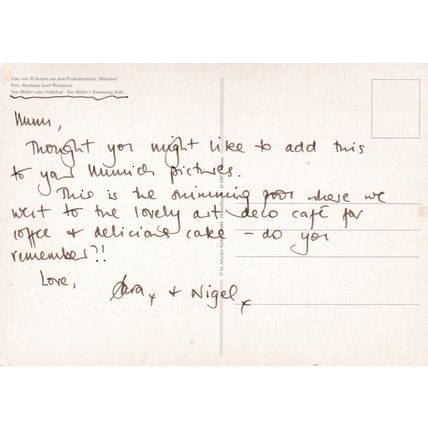 Eine von 30 Karten aus dem Postkartenbuch „München"
Foto: Hermann Josef Wöstmann
Von Müller'sches Volksbad · Von Müller's Swimming Bath
Mum,
Thought you might like to add this
to your Munich pictures.
This is the swimming pool where we
went to the lovely art deco café for
coffee & delicious cake – do you
remember?!
Love,
x + Nigel x